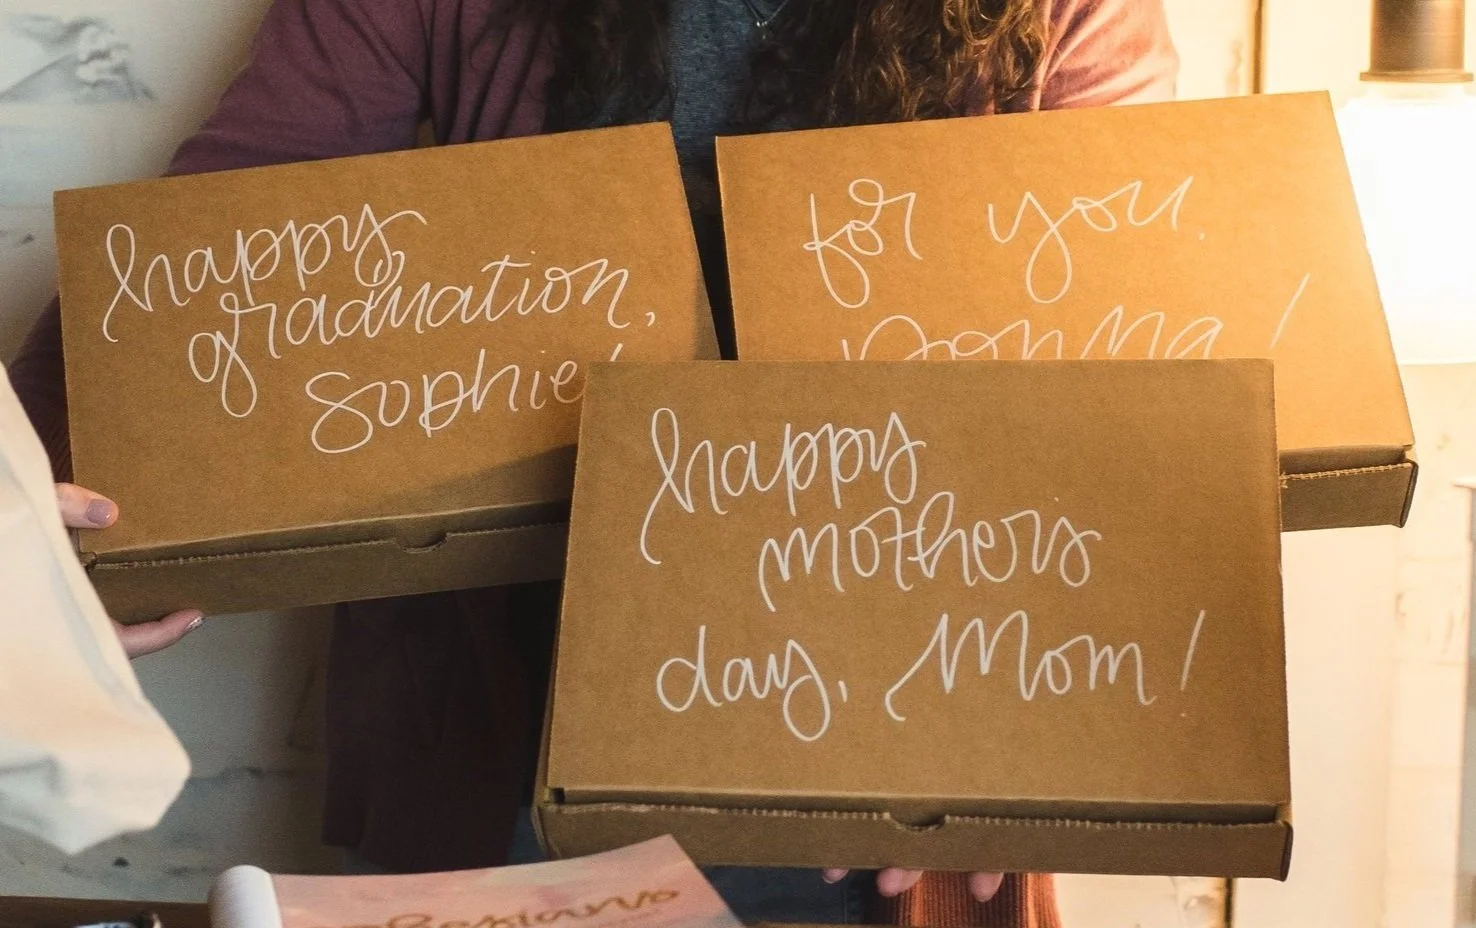 happy
graduation,
Sophie!
for you,
happy
mothers
day, Mom!